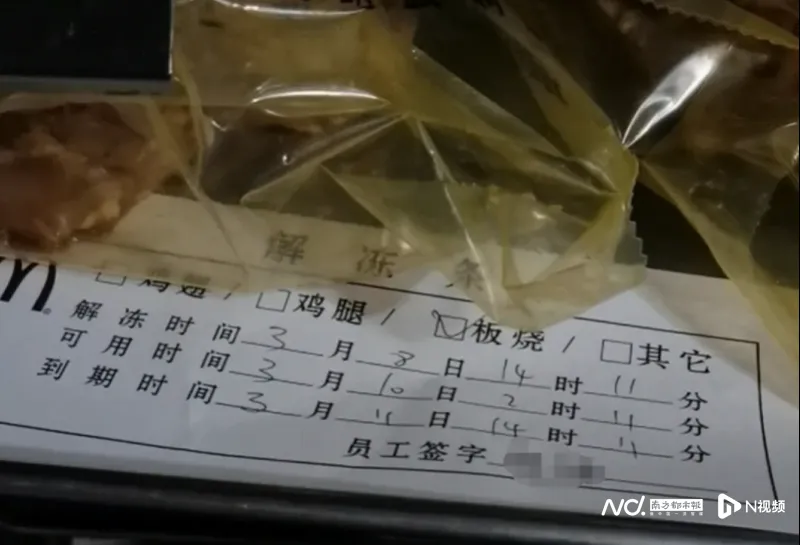 解冻条
□鸡翅/□鸡腿/☑板烧/□其它
解冻时间 3月8日14时11分
可用时间 3月10日2时11分
到期时间 3月11日14时11分
员工签字
南方都市报
N视频